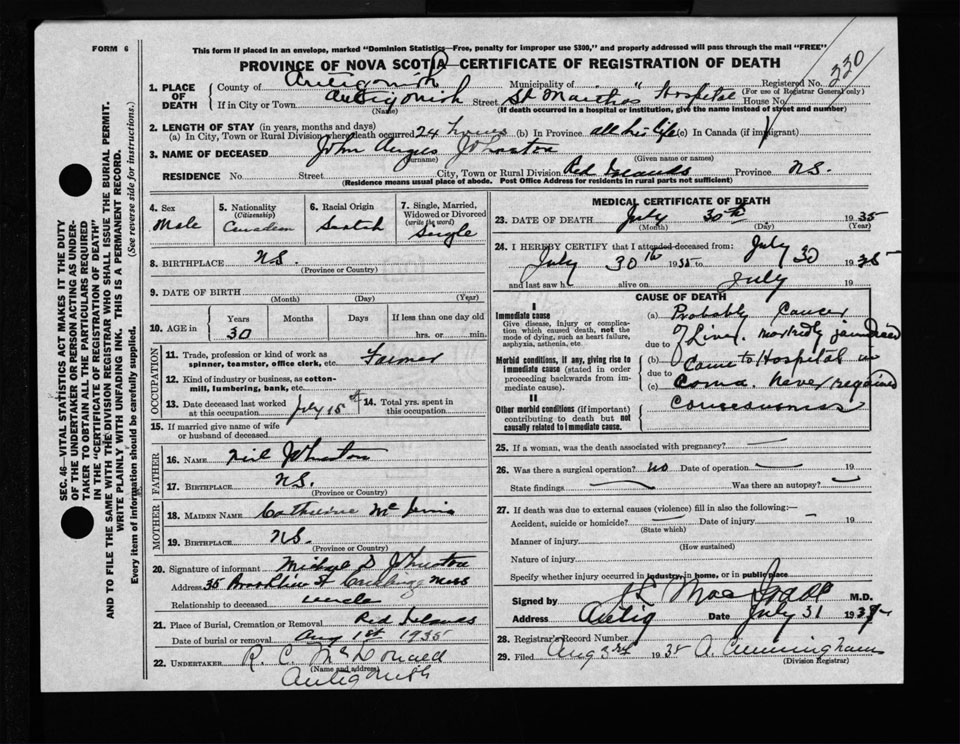 FORM 6
This form if placed in an envelope, marked "Dominion Statistics—Free, penalty for improper use $300," and properly addressed will pass through the mail "FREE"
PROVINCE OF NOVA SCOTIA—CERTIFICATE OF REGISTRATION OF DEATH
330
1. PLACE OF DEATH
County of Antigonish Municipality of " Registered No.
(For use of Registrar General only)
If in City or Town Antigonish Street St Marthas Hospital House No.
(Name) (If death occurred in a hospital or institution, give the name instead of street and number)
2. LENGTH OF STAY (in years, months and days)
(a) In City, Town or Rural Division where death occurred 24 hours (b) In Province all his life (c) In Canada (if immigrant)
3. NAME OF DECEASED John Angus Johnston
(Surname) (Given name or names)
RESIDENCE No. Street City, Town or Rural Division Red Islands Province N.S.
(Residence means usual place of abode. Post Office Address for residents in rural parts not sufficient)
4. Sex Male
5. Nationality (Citizenship) Canadian
6. Racial Origin Scotch
7. Single, Married, Widowed or Divorced (write the word) Single
8. BIRTHPLACE N.S.
(Province or Country)
9. DATE OF BIRTH
(Month) (Day) (Year)
10. AGE in Years 30 Months Days If less than one day old hrs. or min.
OCCUPATION
11. Trade, profession or kind of work as spinner, teamster, office clerk, etc. Farmer
12. Kind of industry or business, as cotton-mill, lumbering, bank, etc.
13. Date deceased last worked at this occupation July 15th
14. Total yrs. spent in this occupation.
15. If married give name of wife or husband of deceased
FATHER
16. NAME Neil Johnston
17. BIRTHPLACE N.S.
(Province or Country)
MOTHER
18. MAIDEN NAME Catherine Mc
19. BIRTHPLACE N.S.
(Province or Country)
20. Signature of informant Michael D Johnston
Address 35 St Mass
Relationship to deceased uncle
21. Place of Burial, Cremation or Removal Red Islands
Date of burial or removal Aug 1st 1935
22. UNDERTAKER R. C. McDonald
(Name and address)
Antigonish
MEDICAL CERTIFICATE OF DEATH
23. DATE OF DEATH July 30th 1935
(Month) (Day) (Year)
24. I HEREBY CERTIFY that I attended deceased from:
July 30th 1935 to July 30 1935
and last saw h alive on July 19
CAUSE OF DEATH
I
Immediate cause
Give disease, injury or complication which caused death, not the mode of dying, such as heart failure, asphyxia, asthenia, etc.
Morbid conditions, if any, giving rise to immediate cause (stated in order proceeding backwards from immediate cause).
II
Other morbid conditions (if important) contributing to death but not causally related to immediate cause.
(a) Probably Cancer
due to of Liver. markedly jaundiced
(b) Came to Hospital in
due to
(c) Coma. Never regained
Consciousness
25. If a woman, was the death associated with pregnancy?
26. Was there a surgical operation? no Date of operation 19
State findings Was there an autopsy?
27. If death was due to external causes (violence) fill in also the following:—
Accident, suicide or homicide? Date of injury 19
(State which)
Manner of injury
(How sustained)
Nature of injury
Specify whether injury occurred in industry, in home, or in public place
Signed by M.D.
Address Antig Date July 31 1935
28. Registrar's Record Number
29. Filed Aug 3rd 1935 A. Cunningham
(Division Registrar)
SEC. 46—VITAL STATISTICS ACT MAKES IT THE DUTY
OF THE UNDERTAKER OR PERSON ACTING AS UNDER-
TAKER TO OBTAIN ALL THE PARTICULARS REQUIRED
IN THE "CERTIFICATE OF REGISTRATION OF DEATH"
AND TO FILE THE SAME WITH THE DIVISION REGISTRAR WHO SHALL ISSUE THE BURIAL PERMIT.
WRITE PLAINLY WITH UNFADING INK. THIS IS A PERMANENT RECORD.
Every item of information should be carefully supplied. (See reverse side for instructions.)